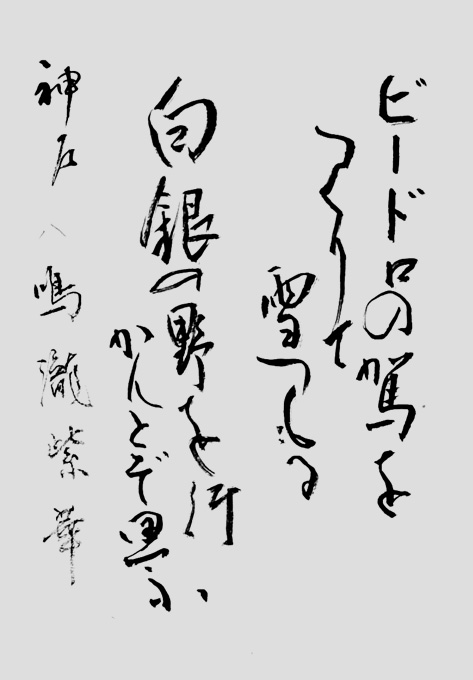 ビードロの駕を
つくりて
雪つもる
白銀の野を行
かんとぞ思ふ
神戸 鳴瀧紫華